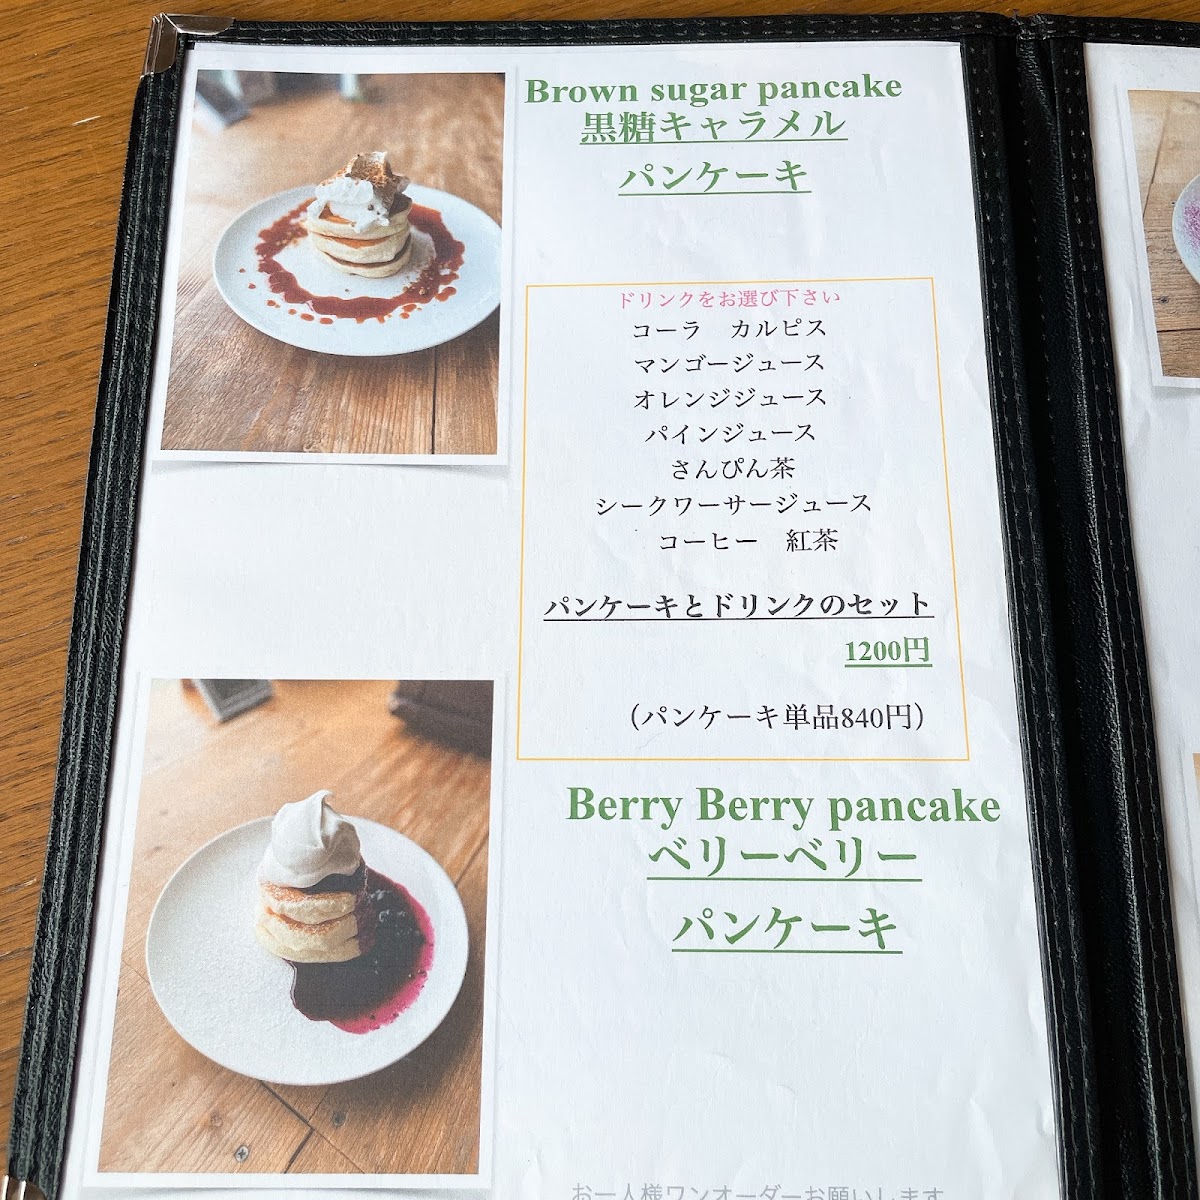 Brown sugar pancake
黒糖キャラメル
パンケーキ
ドリンクをお選び下さい
コーラ　カルピス
マンゴージュース
オレンジジュース
パインジュース
さんぴん茶
シークワーサージュース
コーヒー　紅茶
パンケーキとドリンクのセット
1200円
（パンケーキ単品840円）
Berry Berry pancake
ベリーベリー
パンケーキ
お一人様ワンオーダーお願いします